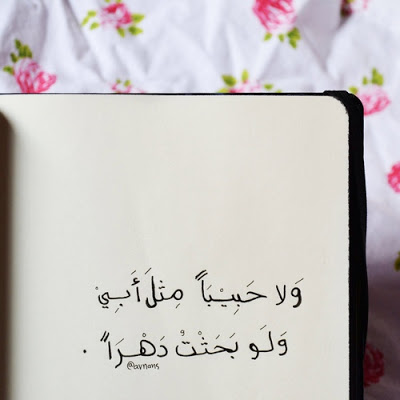 وَلا حَبِيْبَاً مِثلَ أَبِيْ
وَلَو بَحَثْتُ دَهْرَاً .
@avnans